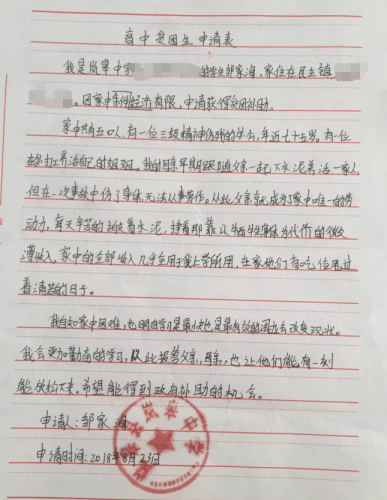 高中贫困生申请表
我是岚皋中学 的学生邹家海,家住在民主镇
。因家中条件经济有限,申请获得贫困补助。
家中共有五口人,有一位三级精神伤残的 ,年近七十五岁。有一位
在外打工养活自己的姐姐。我的母亲早期跟随父亲一起下水泥养活一家人,
但在一次事故中伤了身体无法从事劳作。从此父亲就成为了家中唯一的劳
动力,每天辛苦的 着水泥,挣着那靠以牺牲身体为代价的微
薄收入。家中的全部收入几乎全用于我上学所用,在家他们省吃俭用,过
着清苦的日子。
我自知家中困难,也明白学习是最快也是最有效的 去改变现状。
我会更加勤奋的学习,以此报答父亲,母亲,也让他们能有一刻
能 下来。希望能得到政府补助的机会。
申请人:邹家
申请时间:2018年8月23日
岚皋 中学